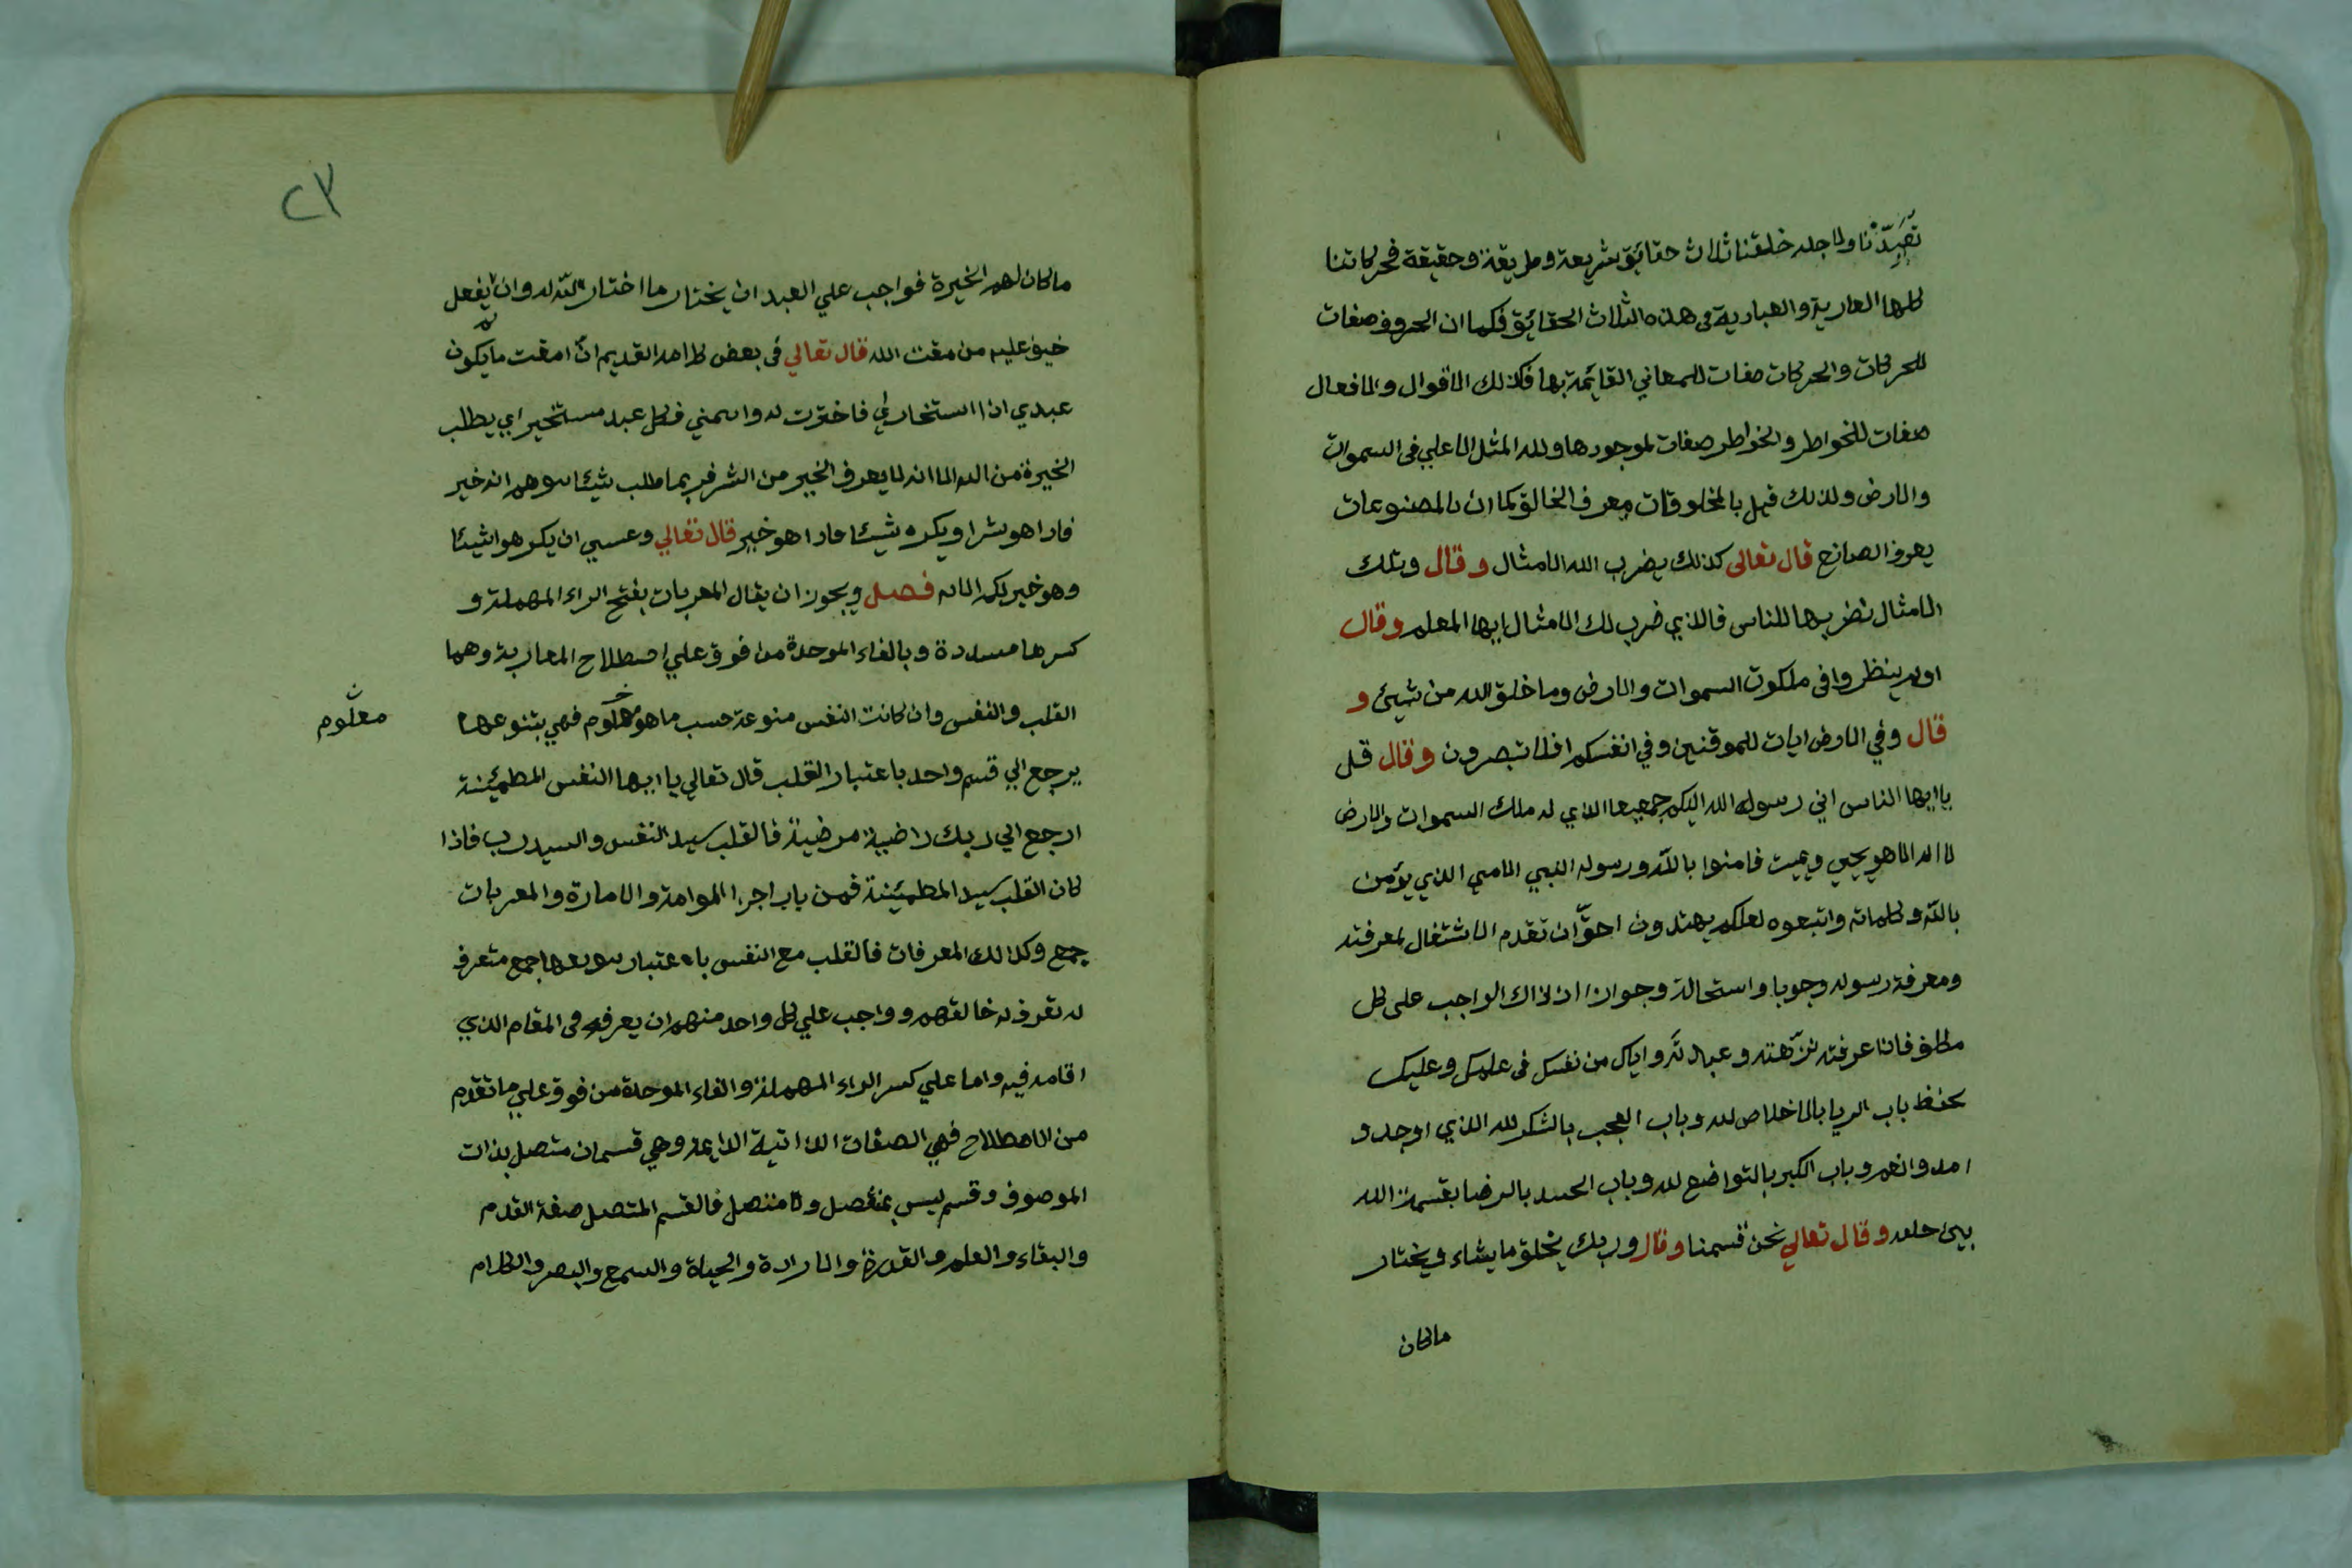 تعبدنا ولاجله خلقنا ثلاث حقائق شريعة وطريقة وحقيقة فحركاتنا
كلها العارية والعبادية في هذه الثلاث الحقائق فكما ان الحروف صفات
للحركات والحركات صفات للمعاني القائمة بها فكذلك الاقوال والافعال
صفات للخواطر والخواطر صفات لموجودها ولله المثل الاعلي في السموات
والارض ولذلك قيل بالمخلوقات يعرف الخالق كما ان بالمصنوعات
يعرف الصانع قال تعالى كذلك يضرب الله الامثال وقال وتلك
الامثال نضربها للناس فالذي ضرب لك الامثال ايها المعلم وقال
اولم ينظروا في ملكوت السموات والارض وما خلق الله من شيئ و
قال وفي الارض ايات للموقنين وفي انفسكم افلا تبصرون وقال قل
يا ايها الناس اني رسول الله اليكم جميعا الذي له ملك السموات والارض
لا اله الا هو يحيي ويميت فامنوا بالله ورسوله النبي الامي الذي يؤمن
بالله وكلماته واتبعوه لعلكم يهتدون احق ان تقدم الاشتغال لمعرفته
ومعرفة رسوله وجوبا واستحالة وجوازا اذ ذاك الواجب على كل
مكلف فاذا عرفته نزهته وعبادته واياك من نفسك في علمك وعليك
بحفظ باب الريا بالاخلاص لله وباب العجب بالشكر لله الذي اوجد و
امد وانعم وباب الكبر بالتواضع لله وباب الحسد بالرضا بقسمة الله
بين خلقه وقال تعالي نحن قسمنا وقال وربك يخلق ما يشاء ويختار
ماكان
٢٣
ماكان لهم الخيرة فواجب علي العبد ان يختار ما اختار الله له وان لا يفعل
خيف عليه من مقت الله قال تعالي في بعض كلامه القديم ان امقت ما يكون
عبدي اذا استخارني فاخترت له واتهمني فكل عبد مستخير اي يطلب
الخيرة من الله الا انه لا يعرف الخير من الشر فربما طلب شيئا يتوهم انه خير
فاذا هو شر او يكره شيئا فاذا هو خير قال تعالي وعسي ان يكرهوا شيئا
وهو خير لكم الاية فصل ويجوز ان يقال المعربات بفتح الراء المهملة و
كسرها مسددة وبالفاء الموحدة من فوق علي اصطلاح المغاربة وهما
القلب والنفس وان كانت النفس منوعة حسب ما هو معلوم فهي بتنوعها
معلوم
يرجع الي قسم واحد باعتبار القلب قال تعالي يا ايها النفس المطمئنة
ارجع الي ربك راضية مرضية فالقلب سيد النفس والسيد رب فاذا
كان القلب سيد المطمئنة فمن باب اجرا اللوامة والامارة والمعربات
جمع وكذالك المعرفات فالقلب مع النفس باعتبار تنويعها جمع متعرف
له تعرف له خالقهم وواجب علي كل واحد منهم ان يعرفه في المقام الذي
اقامه فيه واما علي كسر الراء المهملة والفاء الموحدة من فوق علي ما تقدم
من الاصطلاح فهي الصفات الذاتية الدايمة وهي قسمان متصل بذات
الموصوف وقسم ليس بمنفصل ولا متصل فالقسم المتصل صفة القدم
والبقاء والعلم والقدرة والارادة والحياة والسمع والبصر والكلام